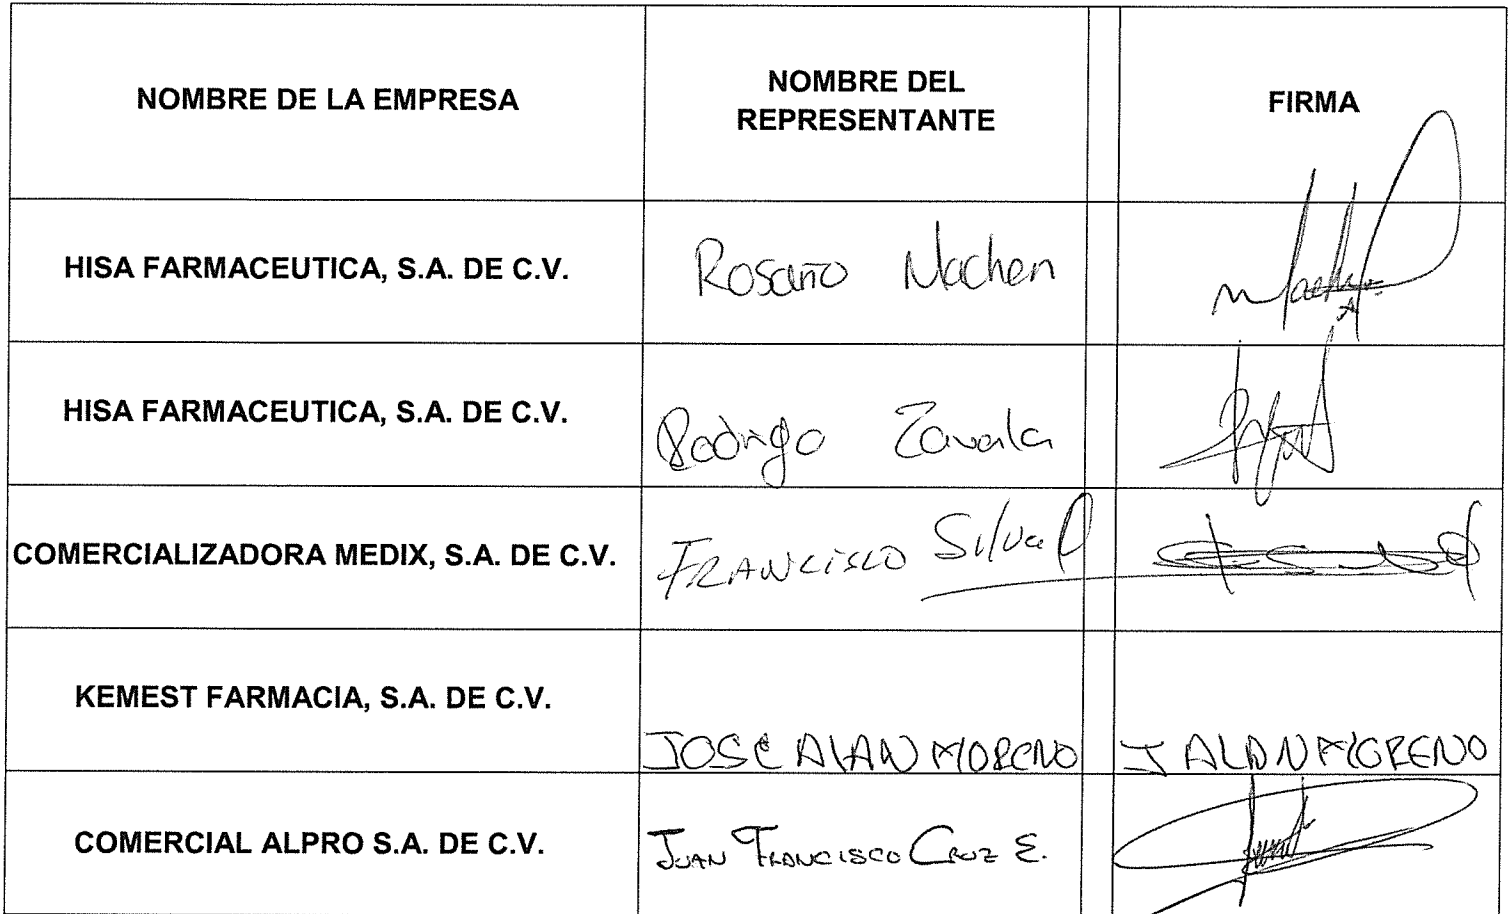 NOMBRE DE LA EMPRESA
NOMBRE DEL
REPRESENTANTE
FIRMA
HISA FARMACEUTICA, S.A. DE C.V.
Rosario Machen
HISA FARMACEUTICA, S.A. DE C.V.
Rodrigo Zavala
COMERCIALIZADORA MEDIX, S.A. DE C.V.
FRANCISCO Silva
KEMEST FARMACIA, S.A. DE C.V.
JOSE ALAN MORENO
J ALAN MORENO
COMERCIAL ALPRO S.A. DE C.V.
JUAN FRANCISCO CRUZ E.